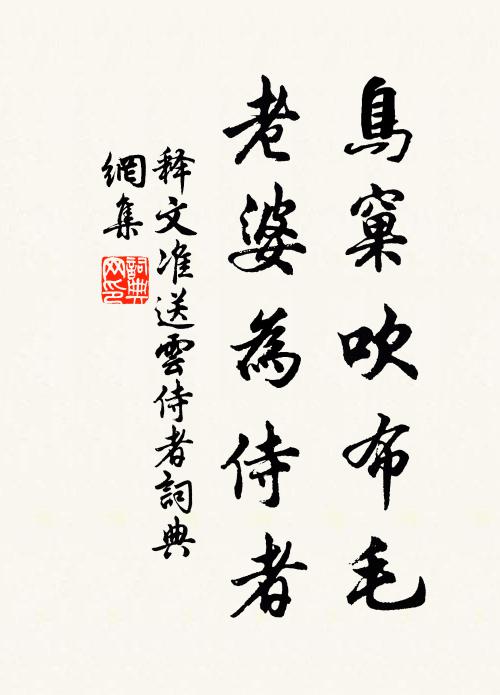 鳥窠吹布毛
老婆為侍者
释文准送雲侍者詞典
網集
詞典
网印